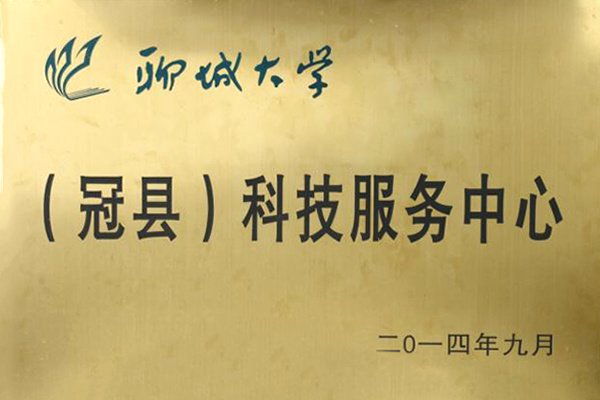 聊城大学
（冠县）科技服务中心
二0一四年九月